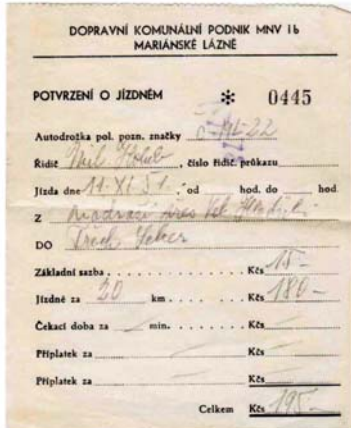 DOPRAVNÍ KOMUNÁLNÍ PODNIK MNV Ib
MARIÁNSKÉ LÁZNĚ
POTVRZENÍ O JÍZDNÉM * 0445
Autodrožka pol. pozn. značky
Řidič Mil. , číslo řidič. průkazu
Jízda dne 11.XI.51. , od hod. do hod.
Z nádraží
DO
Základní sazba . . . . . . . . . . . . Kčs 15-
Jízdné za 20 km . . . . . . . . Kčs 180-
Čekací doba za min. . . . . . . Kčs
Příplatek za Kčs
Příplatek za Kčs
Celkem Kčs 195-